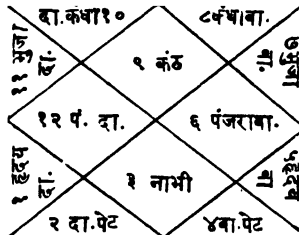 दा.कंधा१०
८कंधाबा.
११ भुजा दां.
९ कंठ
७भुजा बा.
१२ पं. दा.
६ पंजराबा.
१ हृदय दां.
३ नाभी
५हृदय बा
२ दा.पेट
४बा.पेट